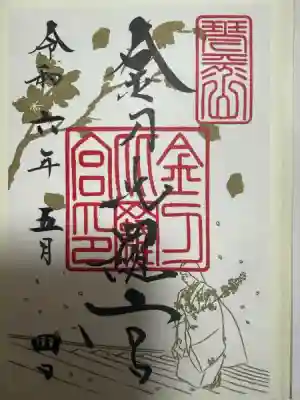 琴平山
金刀比羅宮
金刀比羅宮印
令和六年五月四日